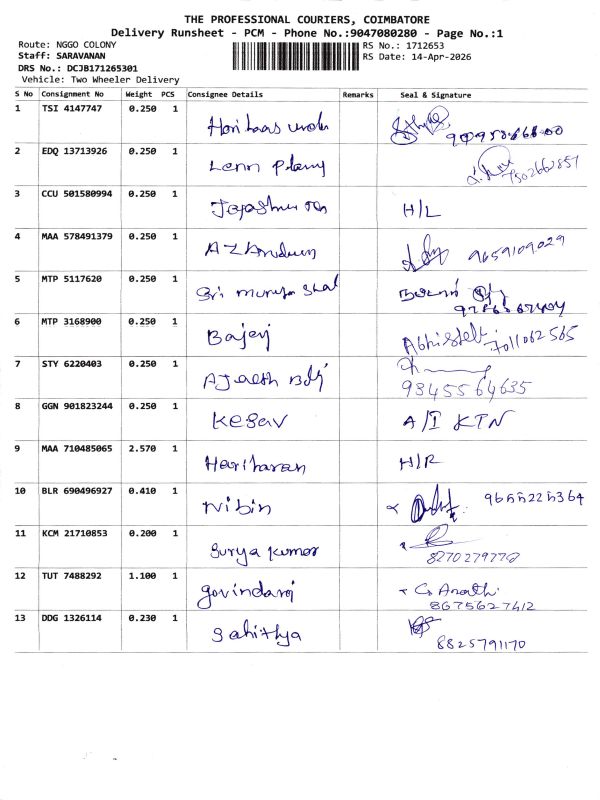 THE PROFESSIONAL COURIERS, COIMBATORE
Delivery Runsheet - PCM - Phone No.:9047080280 - Page No.:1
Route: NGGO COLONY RS No.: 1712653
Staff: SARAVANAN RS Date: 14-Apr-2026
DRS No.: DCJB171265301
Vehicle: Two Wheeler Delivery
S No Consignment No Weight PCS Consignee Details Remarks Seal & Signature
1 TSI 4147747 0.250 1
2 EDQ 13713926 0.250 1 7502662857
3 CCU 501580994 0.250 1 H/L
4 MAA 578491379 0.250 1 9659109029
5 MTP 5117620 0.250 1 Sri
6 MTP 3168900 0.250 1 Bajaj 7011062565
7 STY 6220403 0.250 1
9345564635
8 GGN 901823244 0.250 1 Kesav A/I KTN
9 MAA 710485065 2.570 1 Hariharan H/R
10 BLR 690496927 0.410 1 Nibin 9655225364
11 KCM 21710853 0.200 1 Surya Kumar
8270279778
12 TUT 7488292 1.100 1 Govindaraj
8675627412
13 DDG 1326114 0.230 1 Sahithya
8825791170